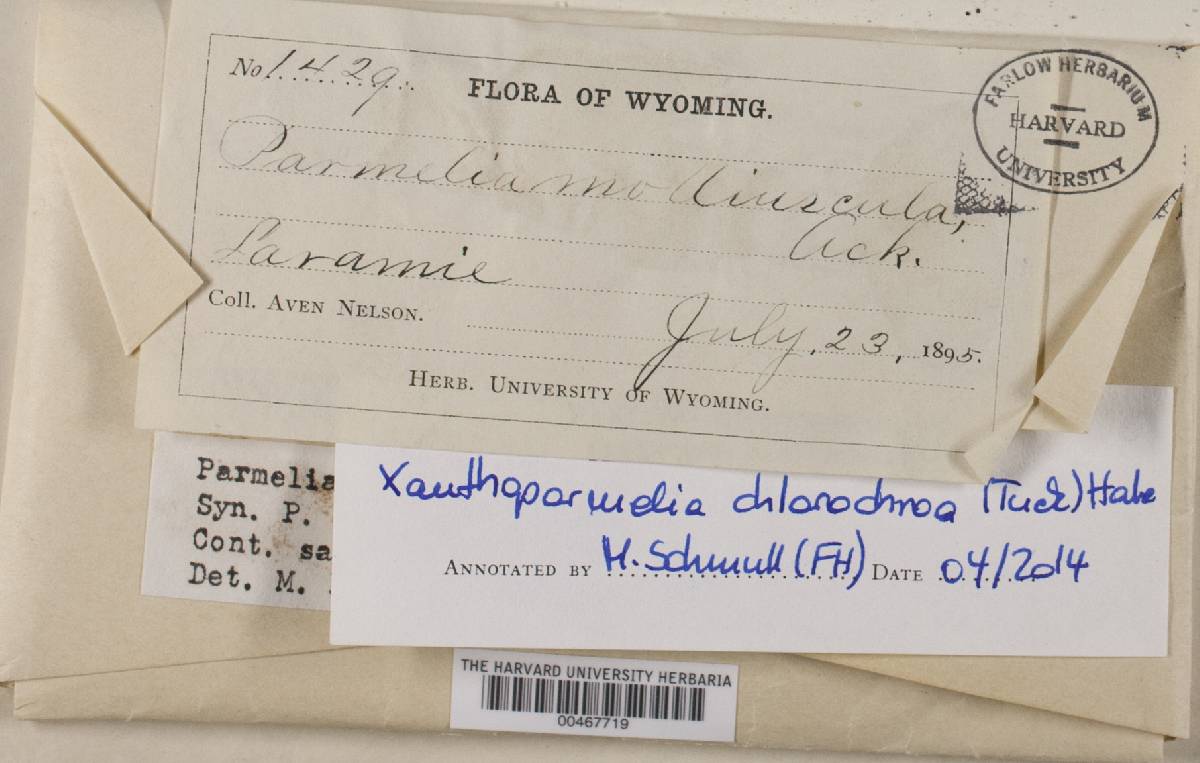 No 1429.
FLORA OF WYOMING.
FARLOW HERBARIUM
HARVARD
UNIVERSITY
Parmelia molliuscula,
Ach.
Laramie
Coll. AVEN NELSON.
July, 23, 1895.
HERB. UNIVERSITY OF WYOMING.
Parmelia
Syn. P.
Cont. sa
Det. M.
Xanthoparmelia chlorochroa (Tuck) Hale
ANNOTATED BY M. Schmull (FH) DATE 04/2014
THE HARVARD UNIVERSITY HERBARIA
00467719